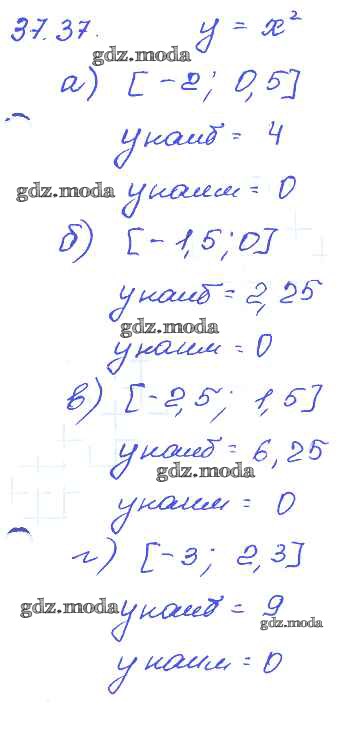 37.37. y = x²
gdz.moda
а) [-2; 0,5]
yнаиб = 4
gdz.moda yнаим = 0
б) [-1,5; 0]
yнаиб = 2,25
gdz.moda
yнаим = 0
в) [-2,5; 1,5]
yнаиб = 6,25
gdz.moda
yнаим = 0
г) [-3; 2,3]
gdz.moda yнаиб = 9
gdz.moda
yнаим = 0